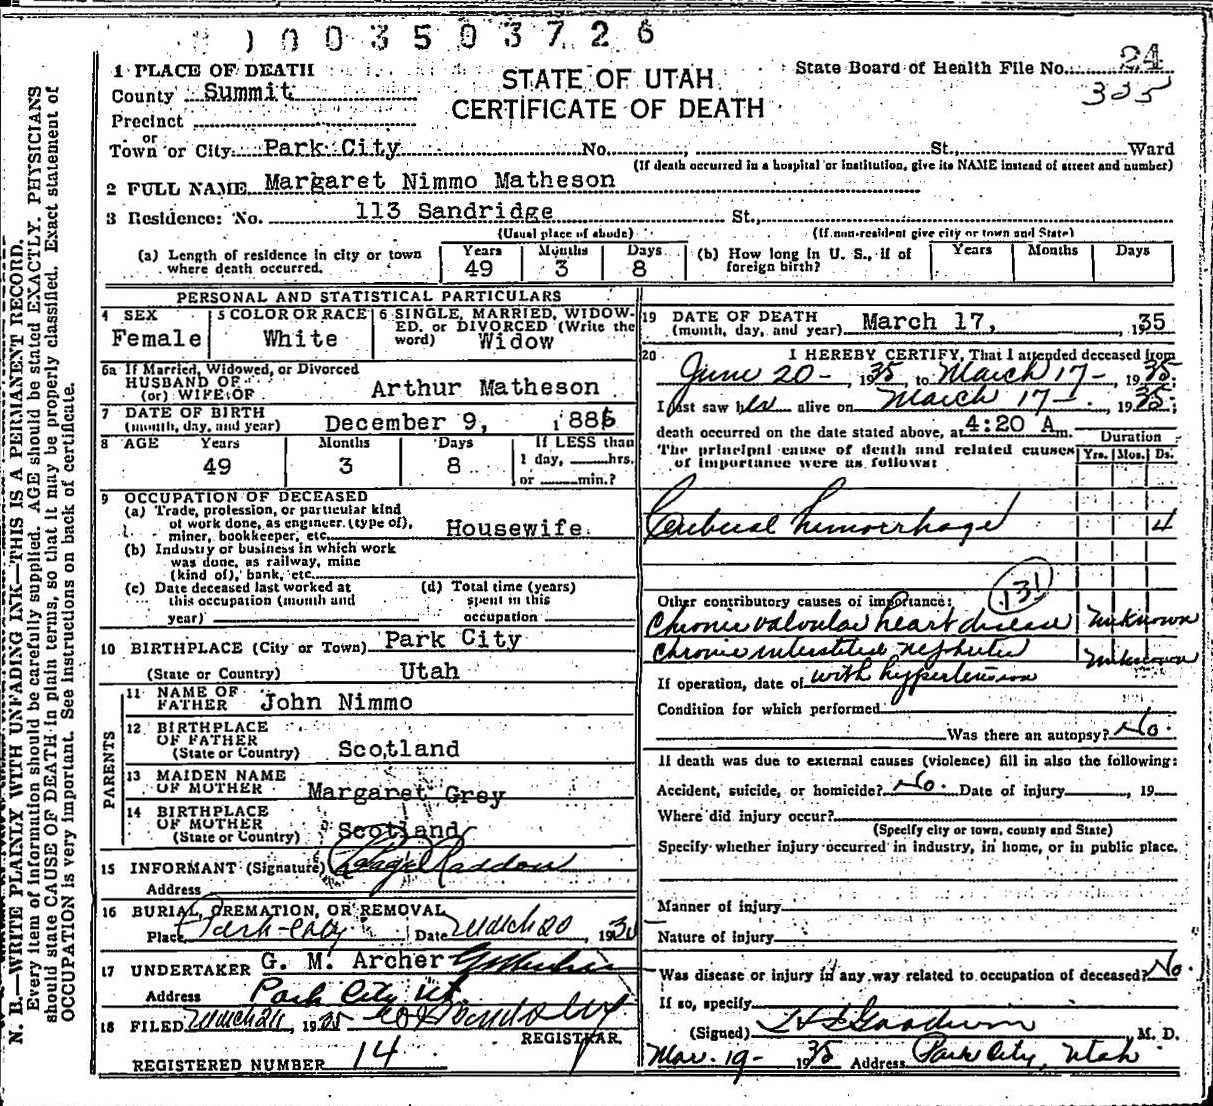 1003503726
1 PLACE OF DEATH
STATE OF UTAH
CERTIFICATE OF DEATH
State Board of Health File No. 24
325
County Summit
Precinct
or
Town or City Park City No. St., Ward
(If death occurred in a hospital or institution, give its NAME instead of street and number)
2 FULL NAME Margaret Nimmo Matheson
3 Residence: No. 113 Sandridge St.,
(Usual place of abode) (If non-resident give city or town and State)
(a) Length of residence in city or town where death occurred. Years 49 Months 3 Days 8
(b) How long in U. S., if of foreign birth? Years Months Days
PERSONAL AND STATISTICAL PARTICULARS
4 SEX Female
5 COLOR OR RACE White
6 SINGLE, MARRIED, WIDOWED, or DIVORCED (Write the word) Widow
6a If Married, Widowed, or Divorced
HUSBAND OF
(or) WIFE OF Arthur Matheson
7 DATE OF BIRTH
(month, day, and year) December 9, 1885
8 AGE Years 49 Months 3 Days 8 If LESS than 1 day, hrs. or min.?
9 OCCUPATION OF DECEASED
(a) Trade, profession, or particular kind
of work done, as engineer, (type of),
miner, bookkeeper, etc. Housewife
(b) Industry or business in which work
was done, as railway, mine
(kind of), bank, etc.
(c) Date deceased last worked at
this occupation (month and
year)
(d) Total time (years)
spent in this
occupation
10 BIRTHPLACE (City or Town) Park City
(State or Country) Utah
PARENTS
11 NAME OF FATHER John Nimmo
12 BIRTHPLACE OF FATHER
(State or Country) Scotland
13 MAIDEN NAME OF MOTHER Margaret Grey
14 BIRTHPLACE OF MOTHER
(State or Country) Scotland
15 INFORMANT (Signature) Raddon
Address
16 BURIAL, CREMATION, OR REMOVAL
Place Park City Date March 20, 193
17 UNDERTAKER G. M. Archer
Address Park City Ut.
18 FILED March 1935
REGISTRAR.
REGISTERED NUMBER 14
19 DATE OF DEATH
(month, day, and year) March 17, 1935
20 I HEREBY CERTIFY, That I attended deceased from
June 20-, 1935, to March 17-, 1935;
I last saw her alive on March 17-, 1935;
death occurred on the date stated above, at 4:20 A m.
The principal cause of death and related causes
of importance were as follows:
Duration
Yrs. Mos. Ds.
Cerebral hemorrhage 4
131
Other contributory causes of importance:
Chronic valvular heart disease Unknown
Chronic interstitial nephritis Unknown
with hypertension
If operation, date of
Condition for which performed
Was there an autopsy? No.
If death was due to external causes (violence) fill in also the following:
Accident, suicide, or homicide? No. Date of injury , 19
Where did injury occur?
(Specify city or town, county and State)
Specify whether injury occurred in industry, in home, or in public place.
Manner of injury
Nature of injury
Was disease or injury in any way related to occupation of deceased? No.
If so, specify
(Signed) Goodwin M. D.
Mar. 19- 1935 Address Park City, Utah
N. B.—WRITE PLAINLY WITH UNFADING INK—THIS IS A PERMANENT RECORD.
Every item of information should be carefully supplied. AGE should be stated EXACTLY. PHYSICIANS
should state CAUSE OF DEATH in plain terms, so that it may be properly classified. Exact statement of
OCCUPATION is very important. See instructions on back of certificate.